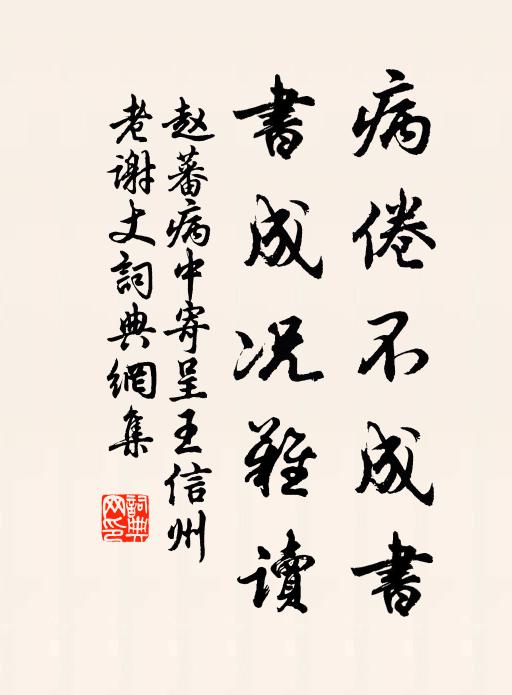 病倦不成書
書成况難讀
赵蕃病中寄呈王信州
老谢丈詞典網集
詞典
网印